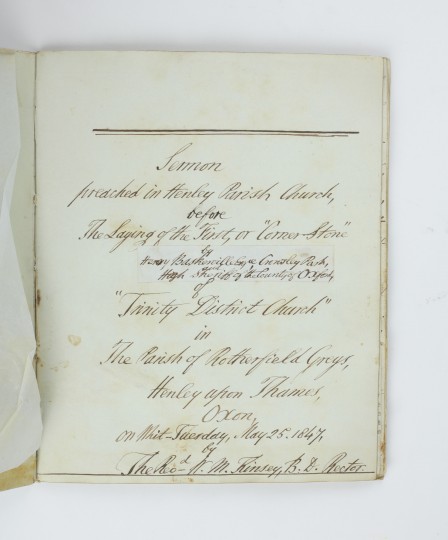 Sermon
preached in Henley Parish Church,
before
The Laying of the First, or "Corner-Stone"
by
Henry Baskerville Esqr. of Crowsley Park,
High Sheriff of the County of Oxford,
of
"Trinity District Church"
in
The Parish of Rotherfield Greys,
Henley upon Thames,
Oxon,
on Whit-Tuesday, May 25. 1847,
by
The Revd. W. M. Kinsey, B. D. Rector